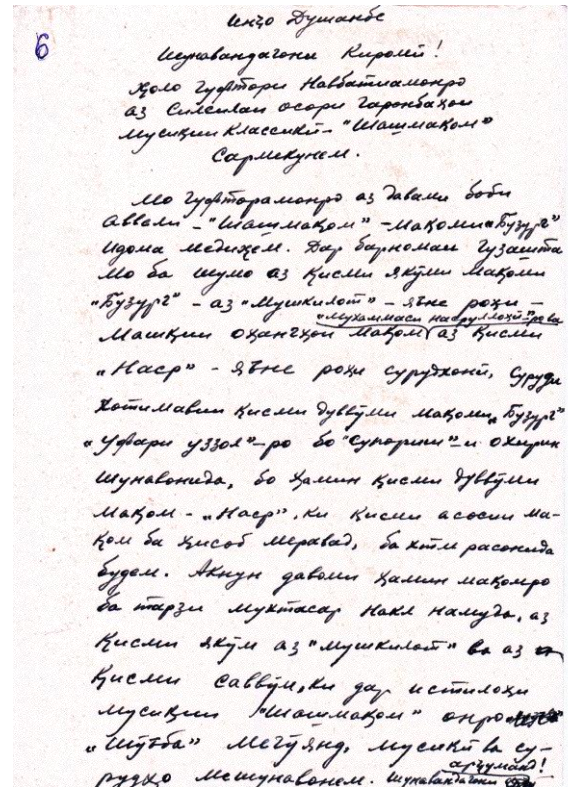 6
Инҷо Душанбе
Шунавандагони Киромӣ!
Ҳоло гуфтори Навбатиамонро
аз Силсилаи осори гаронбаҳои
мусиқии Классикӣ - "Шашмақом"
Сармекунем.
Мо гуфторамонро аз давами боби
аввали - "Шашмақом" - мақоми "Бузург"
идома медиҳем. Дар барномаи гузашта
мо ба шумо аз қисми якӯми мақоми
"Бузург" - аз "Мушкилот" - яъне роҳи -
"Мухаммаси насруллоӣ"-ро ва
машқии оҳангҳои мақом аз қисми
"Наср" - яъне роҳи сурудхонӣ, суруди
хотимавии қисми дуввӯми мақоми "Бузург"
"Уфари уззол"-ро бо "супориш"-и охирин
шунавонида, бо ҳамин қисми дуввӯми
мақом - "Наср", ки қисми асосии ма-
қом ба ҳисоб меравад, ба хтм расонида
будем. Акнун давоми ҳамин мақомро
ба тарзи мухтасар нақл намуда, аз
қисми якӯм аз "мушкилот" ва аз
қисми саввӯм, ки дар истилоҳи
мусиқии "Шашмақом" онро
"Шӯъба" мегӯянд, мусиқӣ ва су-
рудҳо мешунавонем. Шунавандагони арҷуманд!